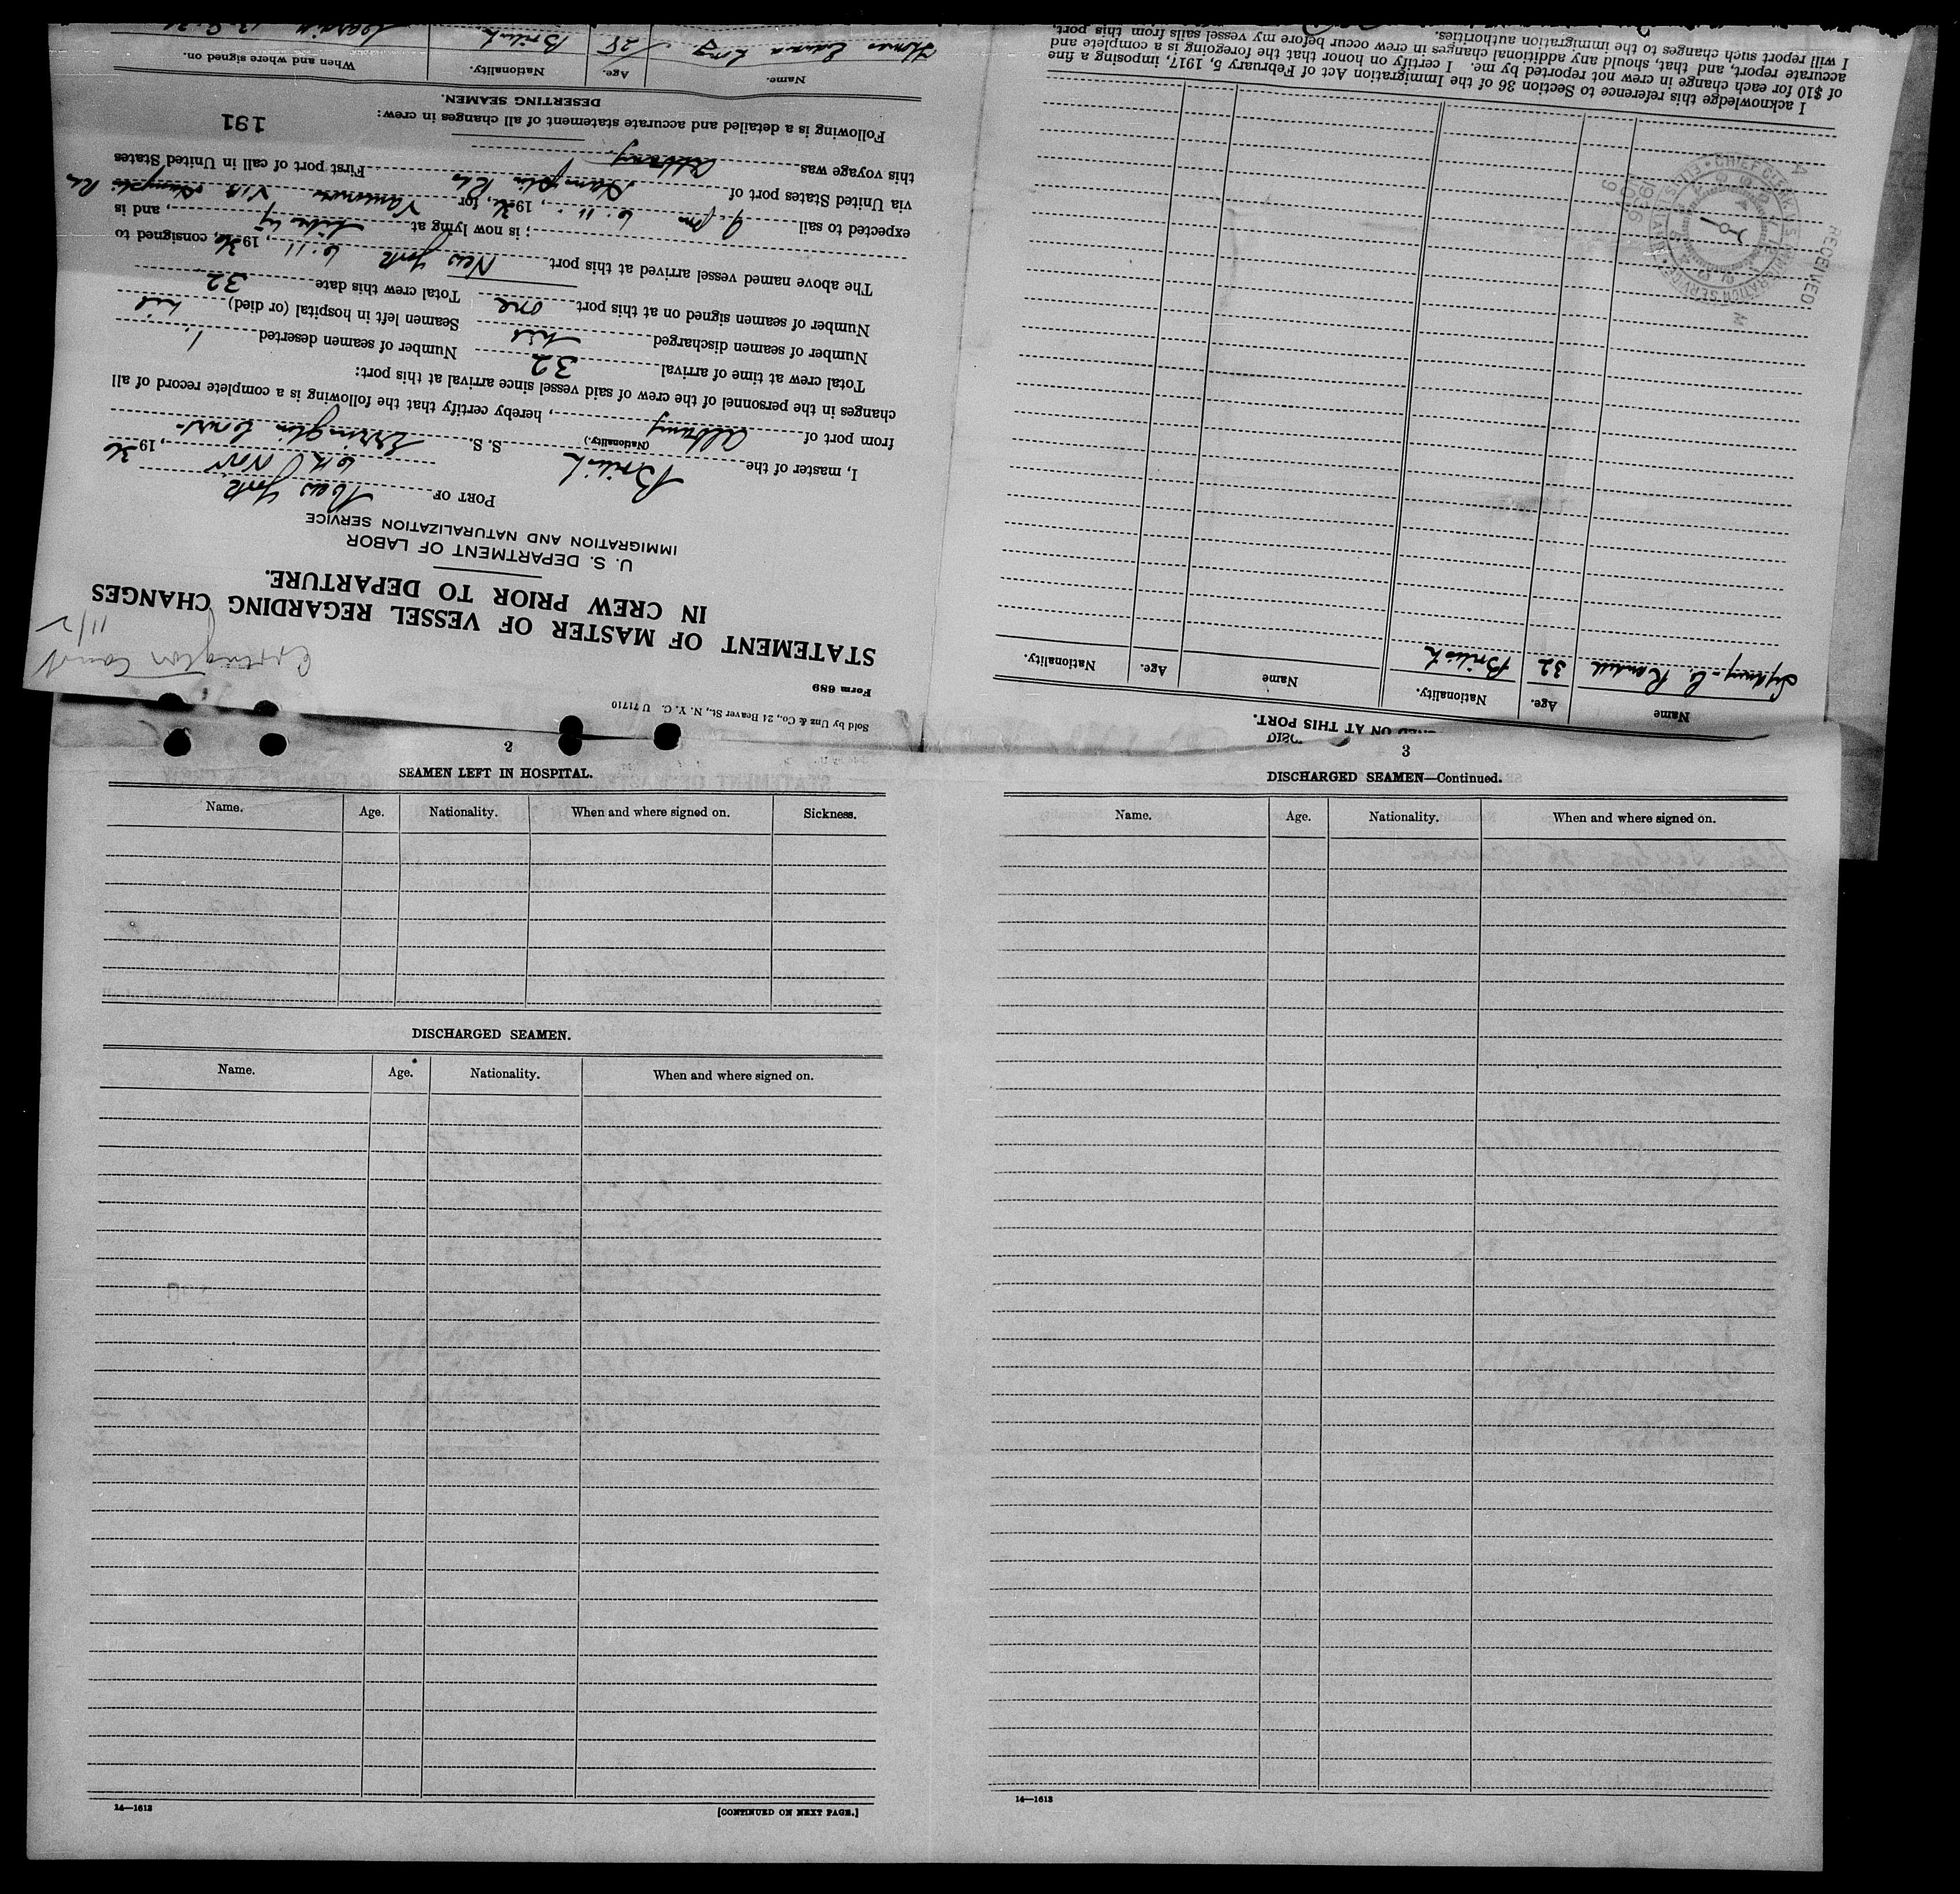 Sold by Unz & Co., 24 Beaver St., N. Y. C. U 71710
Form 689
Errington Court
11/2
STATEMENT OF MASTER OF VESSEL REGARDING CHANGES
IN CREW PRIOR TO DEPARTURE.
U. S. DEPARTMENT OF LABOR
IMMIGRATION AND NATURALIZATION SERVICE
PORT OF New York
6th Nov , 1936
I, master of the British S. S. Errington Court
(Nationality.)
from port of Albany , hereby certify that the following is a complete record of all
changes in the personnel of the crew of said vessel since arrival at this port:
Total crew at time of arrival 32 Number of seamen deserted 1.
Number of seamen discharged nil Seamen left in hospital (or died) nil
Number of seamen signed on at this port one Total crew this date 32
The above named vessel arrived at this port New York 6.11 , 1936, consigned to
; is now lying at , and is
expected to sail 9. pm 6. 11. , 1936, for Vancouver VIA Hampton Rds
via United States port of Hampton Rds First port of call in United States
this voyage was Albany
Following is a detailed and accurate statement of all changes in crew:
191
DESERTING SEAMEN.
Name. Age. Nationality. When and where signed on.
Thomas Long 25 British
ON AT THIS PORT.
Name Age. Nationality. Name Age. Nationality.
Sydney C. 32 British
RECEIVED
CHIEF CLERK
1936
I acknowledge this reference to Section 36 of the Immigration Act of February 5, 1917, imposing a fine
of $10 for each change in crew not reported by me. I certify on honor that the foregoing is a complete and
accurate report, and that, should any additional changes in crew occur before my vessel sails from this port,
I will report such changes to the immigration authorities.
2
SEAMEN LEFT IN HOSPITAL.
Name. Age. Nationality. When and where signed on. Sickness.
DISCHARGED SEAMEN.
Name. Age. Nationality. When and where signed on.
14—1613
[CONTINUED ON NEXT PAGE.]
3
DISCHARGED SEAMEN—Continued.
Name. Age. Nationality. When and where signed on.
14—1613